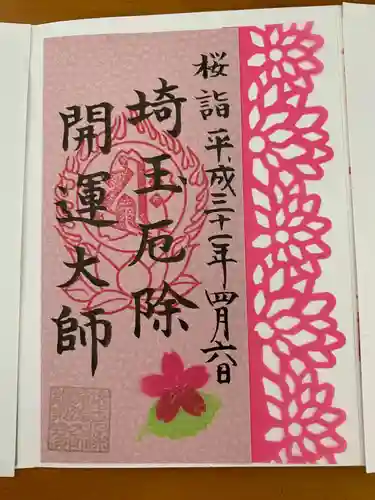 桜詣平成三十一年四月六日
埼玉厄除
開運大師